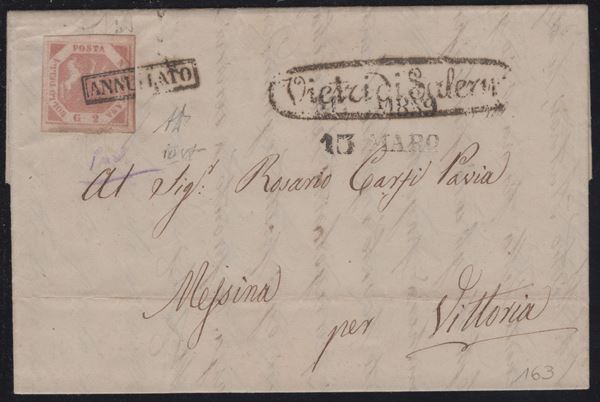 POSTA
NAPOLETANA
G. 2
ANNULLATO
Vietri di Salerno
15 MARO
Al Sigr. Rosario Carfì Pavia
Messina
per Vittoria
163